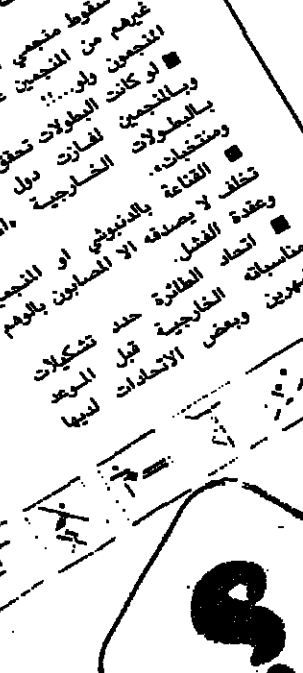 سقوط منجمي
غيرهم من المنجمين
المنجمون ولو...::
■ لو كانت البطولات تحقق
وبالمنجمين لفازت دول
بالبطولات الخارجية
ومنتخبات».
■ القناعة بالدنبوشي أو المنجمين
تخلف لا يصدقه الا المصابون بالوهم
وعقدة الفشل.
■ اتحاد الطائرة حدد تشكيلات
مناسباته الخارجية قبل الموعد
بشهرين وبعض الاتحادات لديها